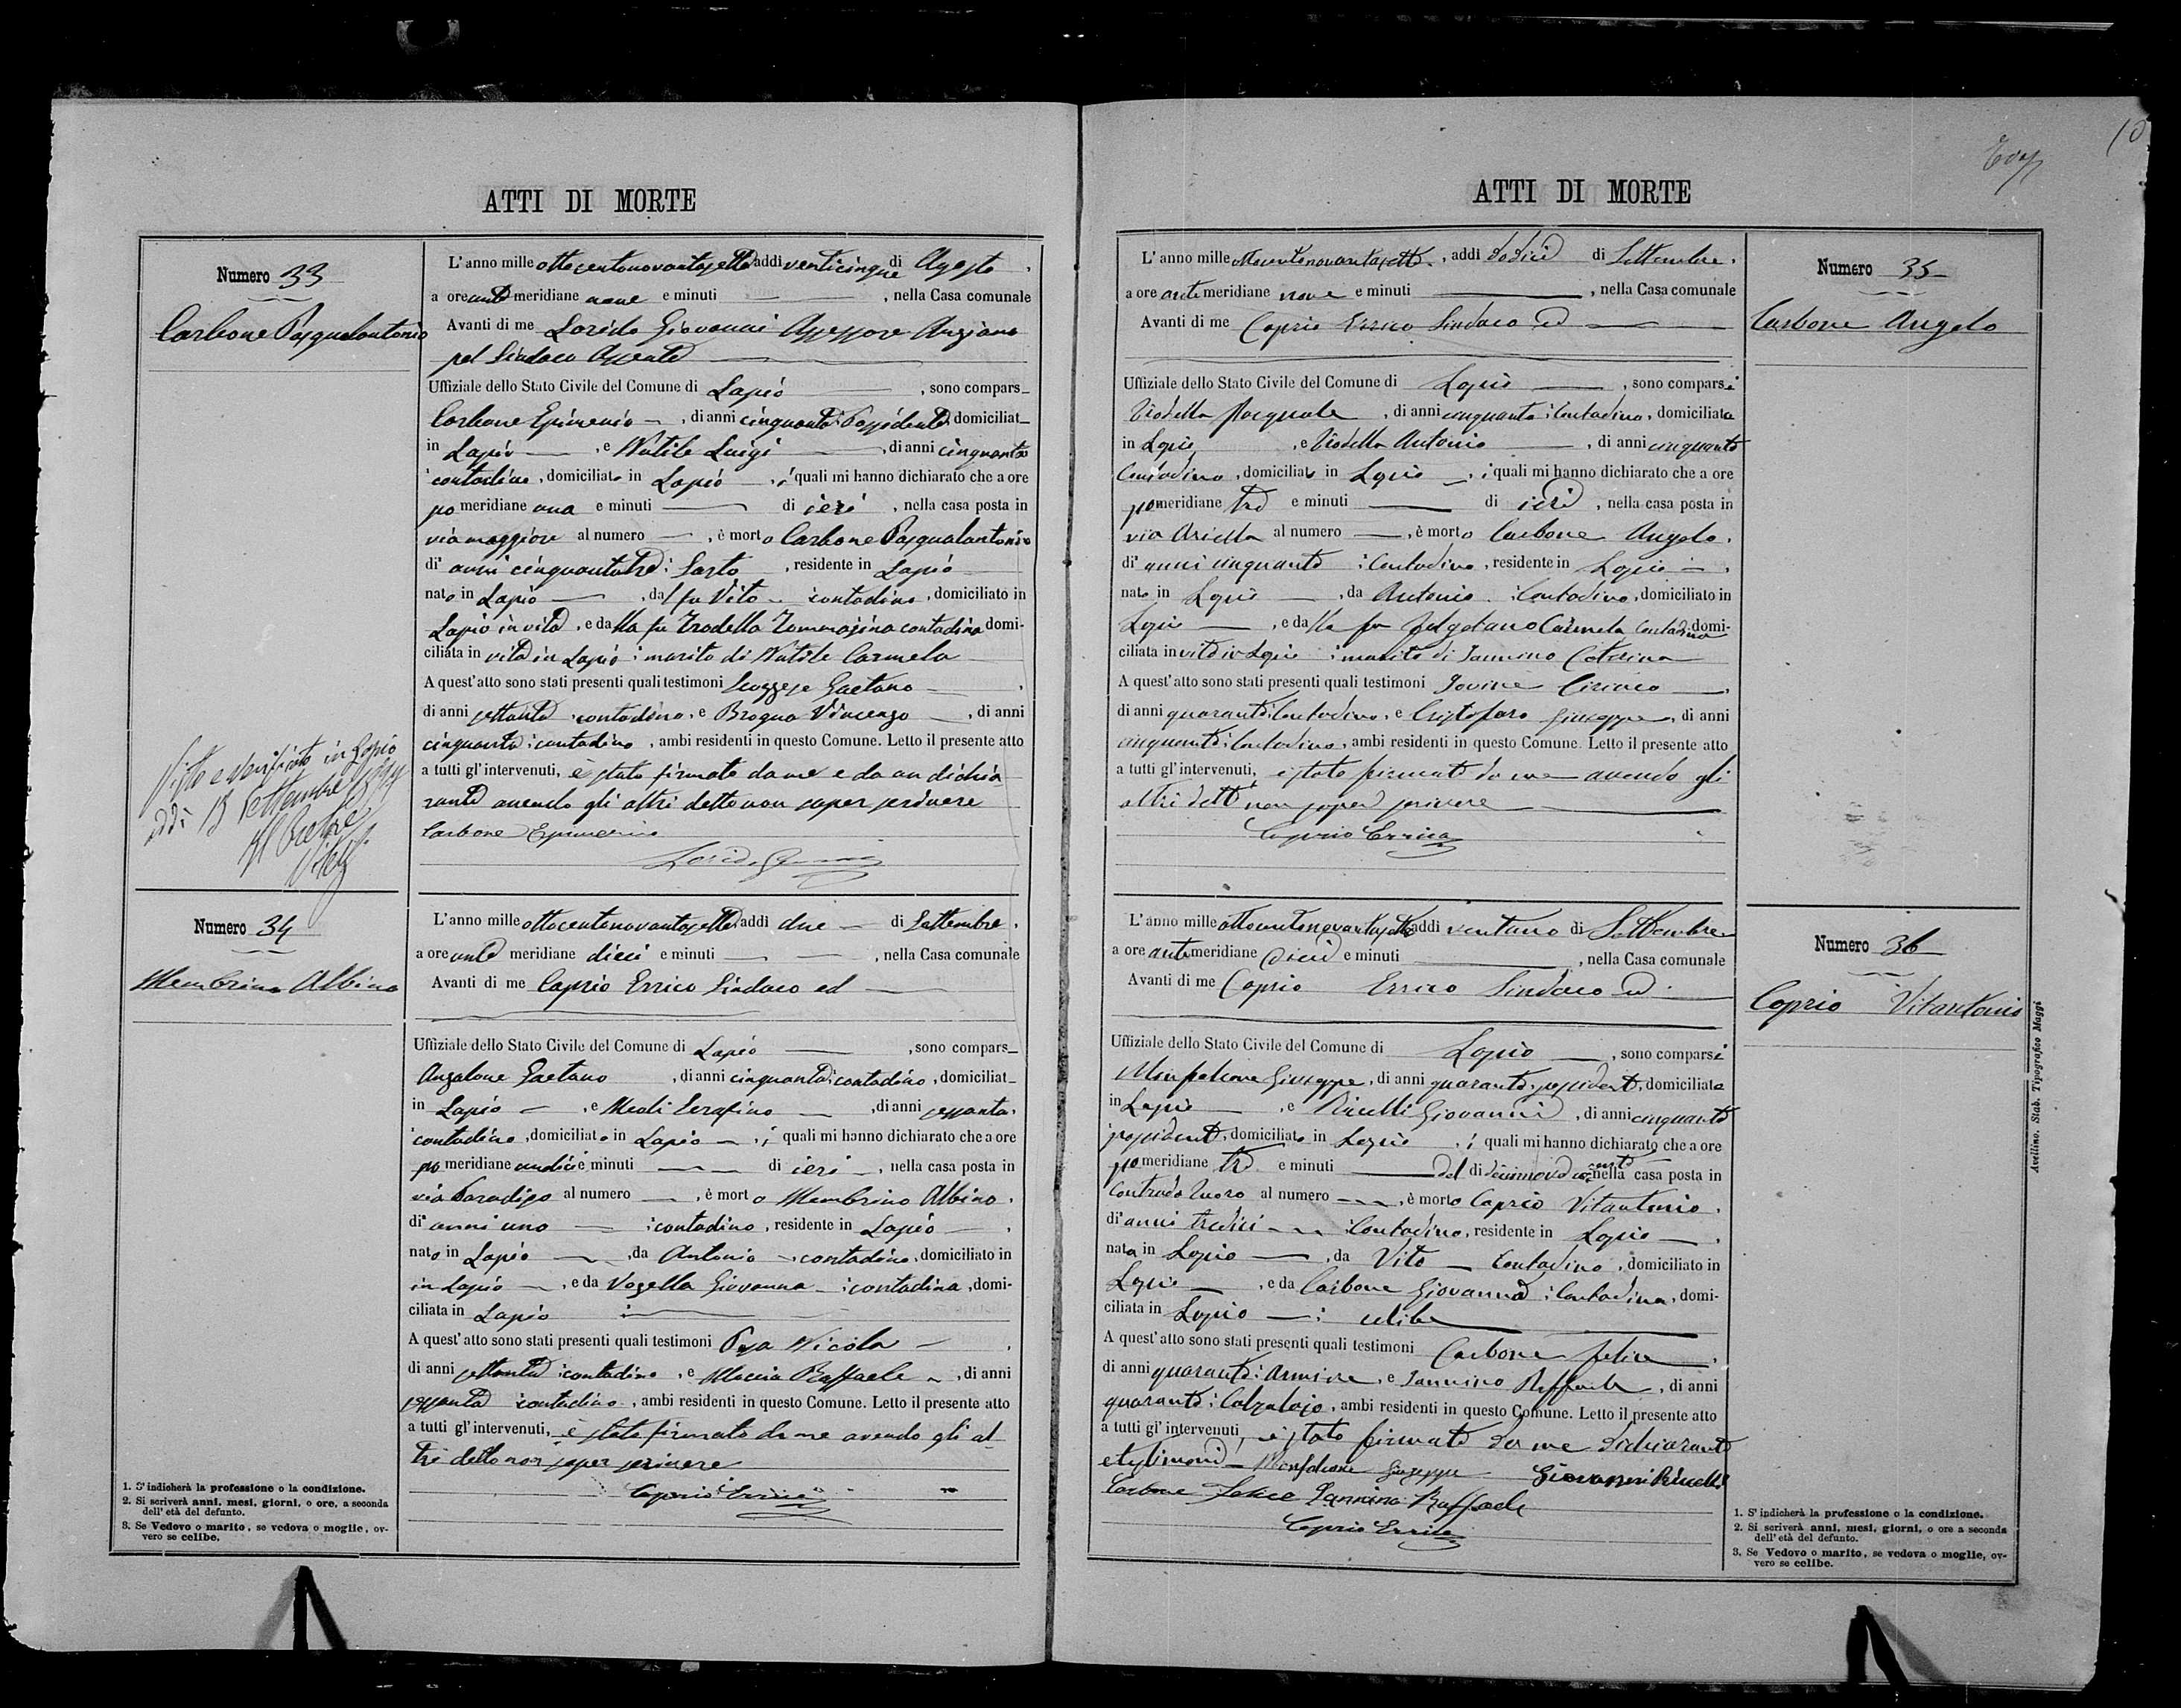 ATTI DI MORTE
Numero 33
Carbone Pasqualantonio
L'anno mille ottocentonovantasette addì venticinque di Agosto,
a ore ante meridiane nove e minuti , nella Casa comunale
Avanti di me Loredo Giovanni Assessore Anziano
pel Sindaco Assente
Uffiziale dello Stato Civile del Comune di Lapio , sono compars
Carbone Epimenio , di anni cinquanta Possidente domiciliat
in Lapio , e Nutile Luigi , di anni cinquanta
contadino, domiciliato in Lapio , i quali mi hanno dichiarato che a ore
po meridiane una e minuti di ieri , nella casa posta in
via maggiore al numero , è morto Carbone Pasqualantonio
di anni cinquantatre : Sarto , residente in Lapio
nato in Lapio , dal fu Vito contadino , domiciliato in
Lapio in vita , e dalla fu Trodella Tommasina contadina domi-
ciliata in vita in Lapio : marito di Nutile Carmela
A quest'atto sono stati presenti quali testimoni Scozzese Gaetano ,
di anni settanta contadino, e Brogna Vincenzo , di anni
cinquanta contadino , ambi residenti in questo Comune. Letto il presente atto
a tutti gl'intervenuti, è stato firmato da me e da un dichia
rante avendo gli altri detto non saper scrivere
Carbone Epimenio
Visto e verificato in Lapio
addì 13 Settembre
Il Pretore
Numero 34
Membrino Albino
L'anno mille ottocentonovantasette addì due di Settembre,
a ore ante meridiane dieci e minuti , nella Casa comunale
Avanti di me Caprio Errico Sindaco ed
Uffiziale dello Stato Civile del Comune di Lapio , sono compars
Anzalone Gaetano , di anni cinquanta contadino , domiciliat
in Lapio , e Meoli Serafino , di anni sessanta,
contadino, domiciliato in Lapio , i quali mi hanno dichiarato che a ore
po meridiane undici e minuti di ieri , nella casa posta in
via Paradiso al numero , è morto Membrino Albino,
di anni uno : contadino , residente in Lapio ,
nato in Lapio , da Antonio contadino , domiciliato in
in Lapio , e da Vozella Giovanna : contadina , domi-
ciliata in Lapio :
A quest'atto sono stati presenti quali testimoni Nicola ,
di anni settanta contadino , e Maccia Raffaele , di anni
sessanta contadino , ambi residenti in questo Comune. Letto il presente atto
a tutti gl'intervenuti, è stato firmato da me avendo gli al
tri detto non saper scrivere
Caprio Errico
1. S'indicherà la professione o la condizione.
2. Si scriverà anni, mesi, giorni, o ore, a seconda
dell'età del defunto.
3. Se Vedovo o marito, se vedova o moglie, ov-
vero se celibe.
10
ATTI DI MORTE
Numero 35
Carbone Angelo
L'anno mille ottocentonovantasette, addì dodici di Settembre,
a ore ante meridiane nove e minuti , nella Casa comunale
Avanti di me Caprio Errico Sindaco ed
Uffiziale dello Stato Civile del Comune di Lapio , sono comparsi
Trodella Pasquale , di anni cinquanta : Contadino, domiciliato
in Lapio , e Trodella Antonio , di anni cinquanta
Contadino, domiciliato in Lapio , i quali mi hanno dichiarato che a ore
po meridiane tre e minuti di ieri , nella casa posta in
via Ariella al numero , è morto Carbone Angelo,
di anni cinquanta : Contadino, residente in Lapio ,
nato in Lapio , da Antonio : Contadino, domiciliato in
Lapio , e dalla fu Carmela Contadina domi-
ciliata in vita in Lapio : marito di Iannino Caterina
A quest'atto sono stati presenti quali testimoni Iovine Ciriaco ,
di anni quaranta Contadino, e Cristofaro Giuseppe, di anni
cinquanta : Contadino, ambi residenti in questo Comune. Letto il presente atto
a tutti gl'intervenuti, è stato firmato da me avendo gli
altri detto non saper scrivere
Caprio Errico
Numero 36
Caprio Vitantonio
L'anno mille ottocentonovantasette addì ventuno di Settembre
a ore ante meridiane dieci e minuti , nella Casa comunale
Avanti di me Caprio Errico Sindaco ed
Uffiziale dello Stato Civile del Comune di Lapio , sono comparsi
Monfalcone Giuseppe, di anni quaranta, possidente, domiciliato
in Lapio , e Rinelli Giovanni , di anni cinquanta
possidente, domiciliato in Lapio , i quali mi hanno dichiarato che a ore
po meridiane tre e minuti del dì diciannove nella casa posta in
Contrada al numero , è morto Caprio Vitantonio,
di anni tredici : Contadino, residente in Lapio ,
nato in Lapio , da Vito Contadino , domiciliato in
Lapio , e da Carbone Giovanna : Contadina, domi-
ciliata in Lapio : celibe
A quest'atto sono stati presenti quali testimoni Carbone Felice ,
di anni quaranta : , e Iannino Raffaele , di anni
quaranta : Calzolaio, ambi residenti in questo Comune. Letto il presente atto
a tutti gl'intervenuti, è stato firmato da me dichiaranti
e testimoni Monfalcone Giuseppe Giovanni Rinelli
Carbone Felice Iannino Raffaele
Caprio Errico
1. S'indicherà la professione o la condizione.
2. Si scriverà anni, mesi, giorni, o ore a seconda
dell'età del defunto.
3. Se Vedovo o marito, se vedova o moglie, ov-
vero se celibe.
Avellino. Stab. Tipografico Maggi